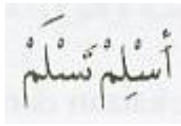 أَسْلِمْ تَسْلَمْ